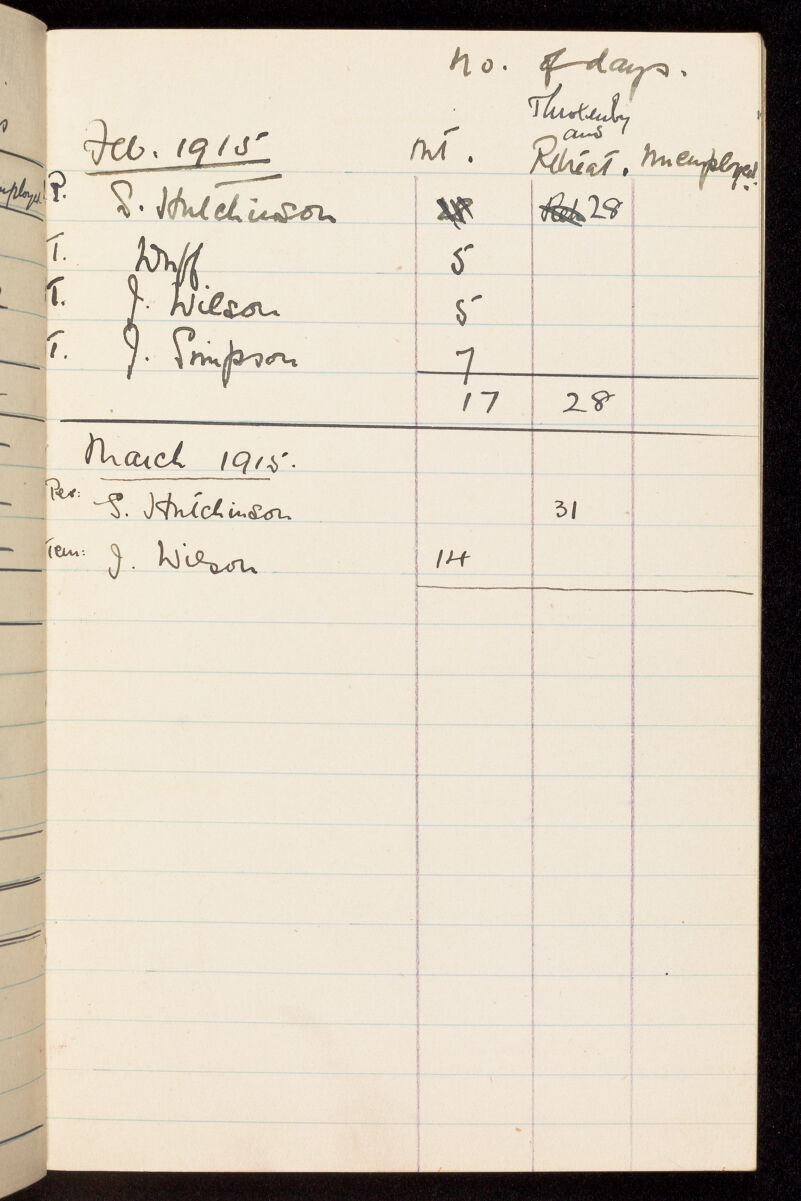 No. of days.
Throxenby
and
Feb. 1915 Int. Retreat. Unemployed.
P. S. Hutchinson 28
T. Wuff 5
T. J. Wilson 5
T. J. Simpson 7
17 28
March 1915.
Per: S. Hutchinson 31
Tem: J. Wilson 14